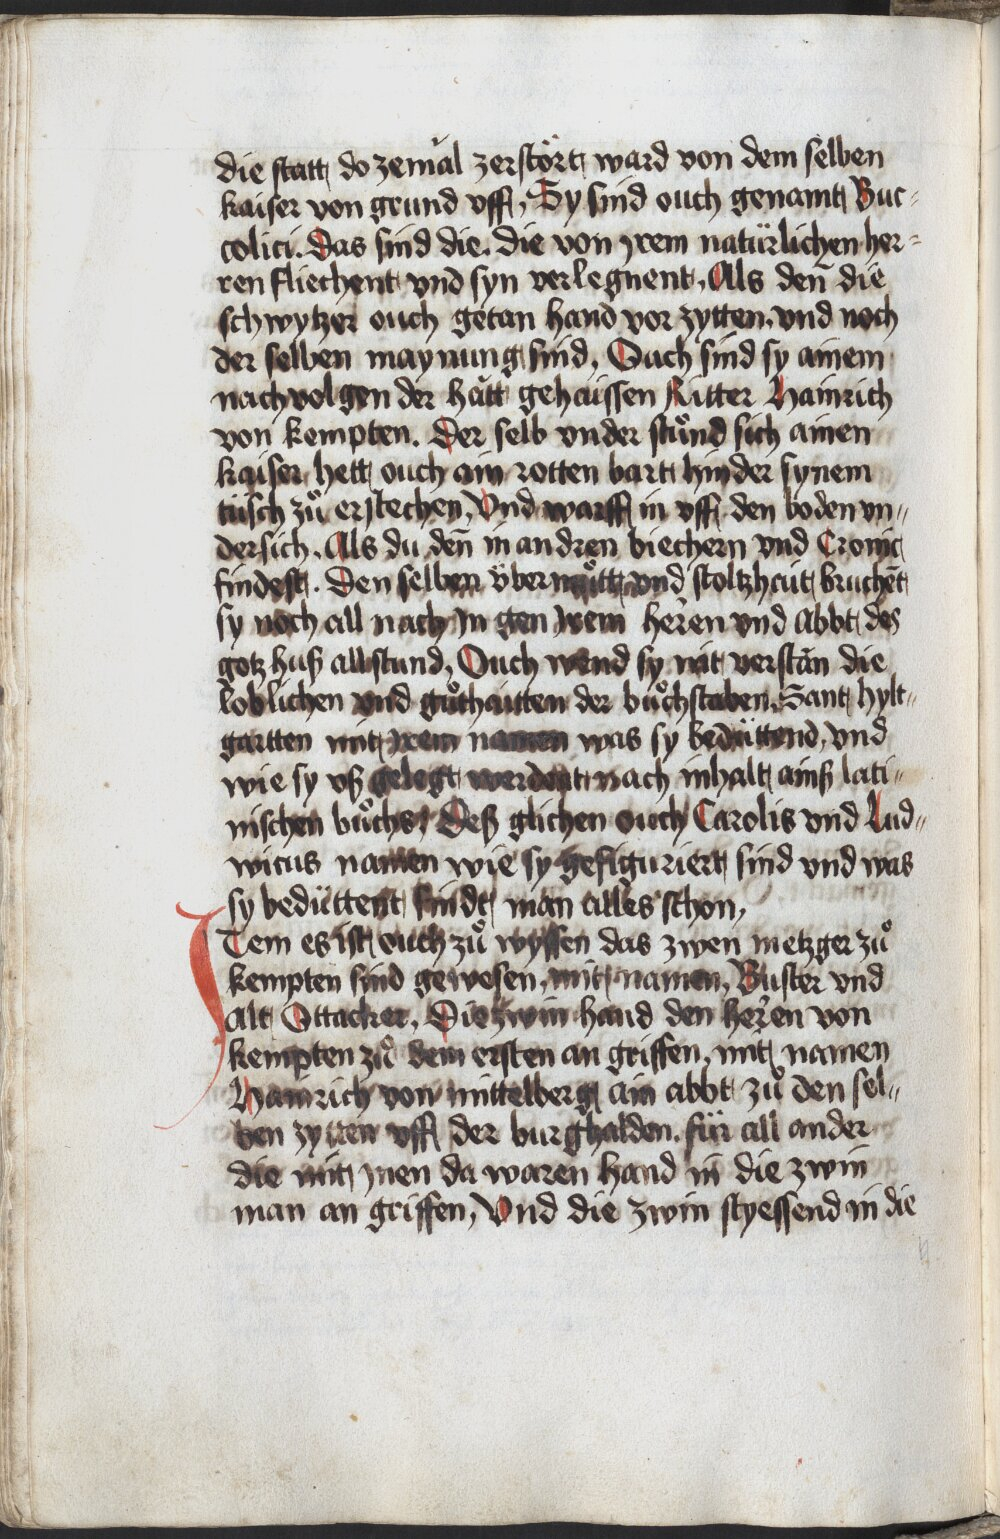 die statt do zemal zerstört ward von dem selben
kaiser von grund vff, Sy sind ouch genamt Buc-
colici. Das sind die. die von yrem natürlichen her-
ren fliechent vnd syn verlegnent, Als den̄ die
schwytzer ouch getan hand vor zytten, vnd noch
der selben maynung sind, Ouch sind sy ainem
nachvolgen der hatt gehaissen Ritter Hainrich
von kempten. Der selb vnder stůnd sich ainen
kaiser hett ouch ain rotten bart hinder synem
tisch zů erstechen, Vnd warff in vff den boden vn-
dersich, Als du den̄ in andren biechern vnd Cronic
findest. Den selben übermůtt vnd stoltzhait bruchēt
sy noch all nach yn gen yrem heren vnd abbt des
gotzhuß allstund, Ouch wend sy nit verstan die
loblichen vnd gůthaitten der bůchstaben, Sant hylt-
gartten mit yrem namen was sy bedüttend, vnd
wie sy vß gelegt werdent nach inhalt ainß lati-
nischen bůchs, Deß glichen ouch Carolis vnd Lud-
wicus namen wie sy gefiguriert sind vnd was
sy bedüttent findt man alles schon,
ITem es ist ouch zů wyssen das zwen metzger zů
kempten sind gewesen, mit namen, Buster vnd
alt Ottacker, Die zwin hand den heren von
kempten zů dem ersten an griffen, mit namen
Hainrich von mittelberg ain abbt zů den sel-
ben zytten vff der burghalden. für all ander
die mit ynen da waren hand in die zwin
man an griffen, Vnd die zwin styessend in die